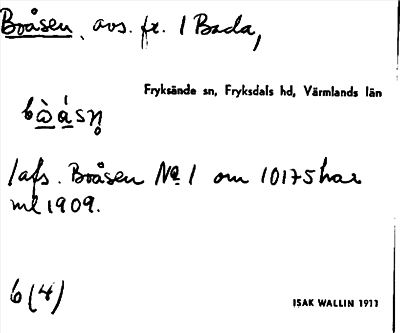 Bråsen, avs. fr. 1 Bada,
Fryksände sn, Fryksdals hd, Värmlands län
1 afs. Bråsen No 1 om 10175 har
ml 1909.
6 (4)
ISAK WALLIN 1911